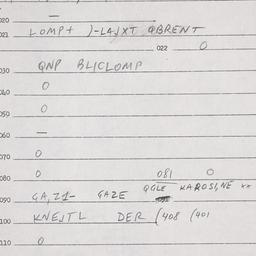 020 —
021 LOMP+ )-LAJXT QBRENT
022 O
030 QNP BLICLOMP
040 O
050 O
060 —
070 O
080 O 081 O
090 GA,Z1- GAZE QGLE KAROSI,NE xx
100 KNEJTL DER (408 (401
110 O